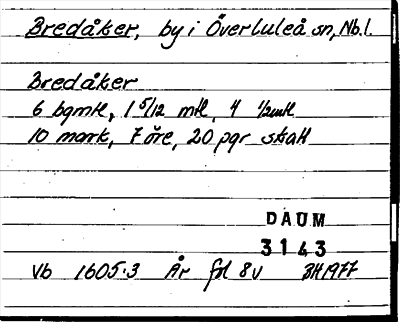 Bredåker, by i Överluleå sn, Nb.l.
Bredåker
6 bgmtl, 1 5/12 mtl, 4 1/2mtl
10 mark, 7 öre, 20 pgr skatt
DAUM
3143
Vb 1605:3 År fol 8v BH1977